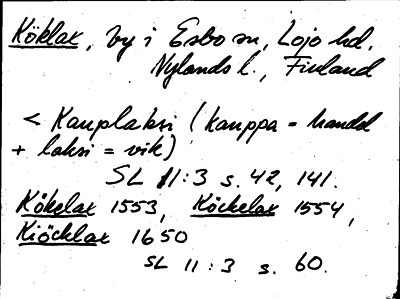 Köklax, by i Esbo sn, Lojo hd.
Nylands l., Finland
< Kauplaksi (kauppa = handel
+ laksi = vik)
SL 11:3 s. 42, 141.
Kökelax 1553, Köckelax 1554,
Kiöcklax 1650
SL 11:3 s. 60.